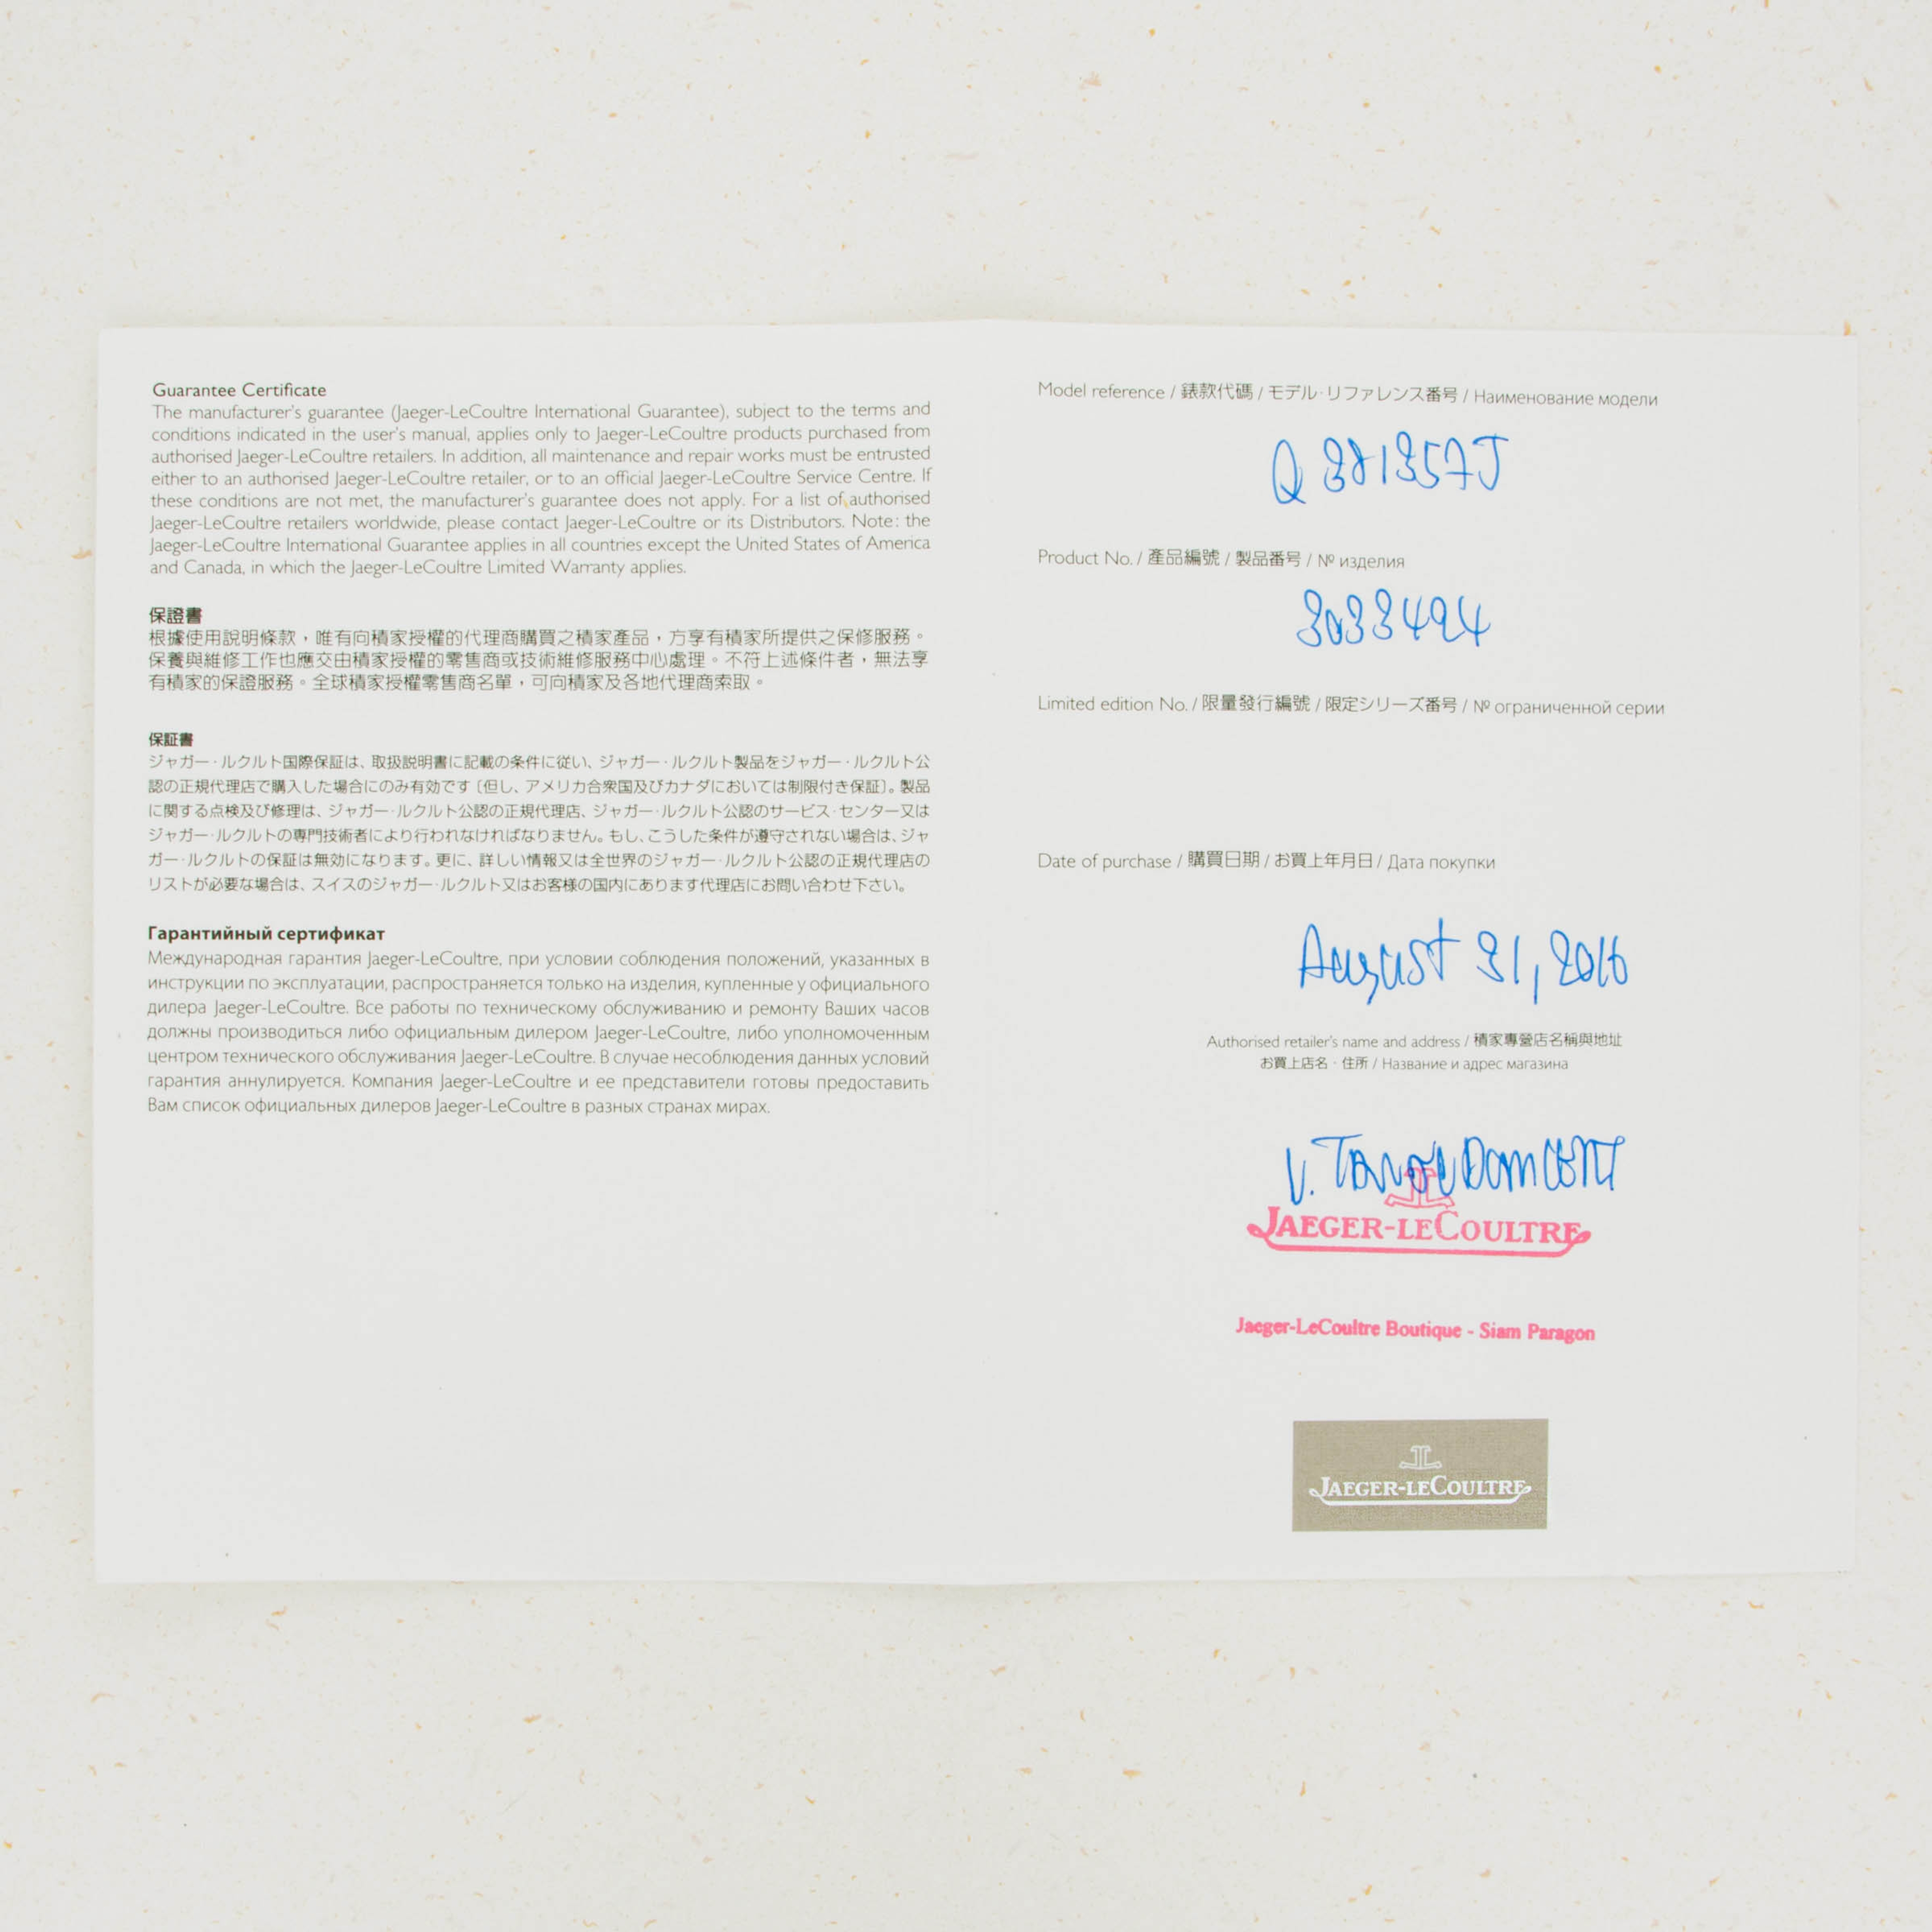 Guarantee Certificate
The manufacturer's guarantee (Jaeger-LeCoultre International Guarantee), subject to the terms and
conditions indicated in the user's manual, applies only to Jaeger-LeCoultre products purchased from
authorised Jaeger-LeCoultre retailers. In addition, all maintenance and repair works must be entrusted
either to an authorised Jaeger-LeCoultre retailer, or to an official Jaeger-LeCoultre Service Centre. If
these conditions are not met, the manufacturer's guarantee does not apply. For a list of authorised
Jaeger-LeCoultre retailers worldwide, please contact Jaeger-LeCoultre or its Distributors. Note: the
Jaeger-LeCoultre International Guarantee applies in all countries except the United States of America
and Canada, in which the Jaeger-LeCoultre Limited Warranty applies.
保證書
根據使用說明條款，唯有向積家授權的代理商購買之積家產品，方享有積家所提供之保修服務。
保養與維修工作也應交由積家授權的零售商或技術維修服務中心處理。不符上述條件者，無法享
有積家的保證服務。全球積家授權零售商名單，可向積家及各地代理商索取。
保証書
ジャガー･ルクルト国際保証は、取扱説明書に記載の条件に従い、ジャガー･ルクルト製品をジャガー･ルクルト公
認の正規代理店で購入した場合にのみ有効です〔但し、アメリカ合衆国及びカナダにおいては制限付き保証〕。製品
に関する点検及び修理は、ジャガー･ルクルト公認の正規代理店、ジャガー･ルクルト公認のサービス･センター又は
ジャガー･ルクルトの専門技術者により行われなければなりません。もし、こうした条件が遵守されない場合は、ジャ
ガー･ルクルトの保証は無効になります。更に、詳しい情報又は全世界のジャガー･ルクルト公認の正規代理店の
リストが必要な場合は、スイスのジャガー･ルクルト又はお客様の国内にあります代理店にお問い合わせ下さい。
Гарантийный сертификат
Международная гарантия Jaeger-LeCoultre, при условии соблюдения положений, указанных в
инструкции по эксплуатации, распространяется только на изделия, купленные у официального
дилера Jaeger-LeCoultre. Все работы по техническому обслуживанию и ремонту Ваших часов
должны производиться либо официальным дилером Jaeger-LeCoultre, либо уполномоченным
центром технического обслуживания Jaeger-LeCoultre. В случае несоблюдения данных условий
гарантия аннулируется. Компания Jaeger-LeCoultre и ее представители готовы предоставить
Вам список официальных дилеров Jaeger-LeCoultre в разных странах мирах.
Model reference / 錶款代碼 / モデル･リファレンス番号 / Наименование модели
Q 381357J
Product No. / 產品編號 / 製品番号 / № изделия
3033494
Limited edition No. / 限量發行編號 / 限定シリーズ番号 / № ограниченной серии
Date of purchase / 購買日期 / お買上年月日 / Дата покупки
August 31, 2016
Authorised retailer's name and address / 積家專營店名稱與地址
お買上店名 · 住所 / Название и адрес магазина
V.
JAEGER-LECOULTRE
Jaeger-LeCoultre Boutique - Siam Paragon
JAEGER-LECOULTRE